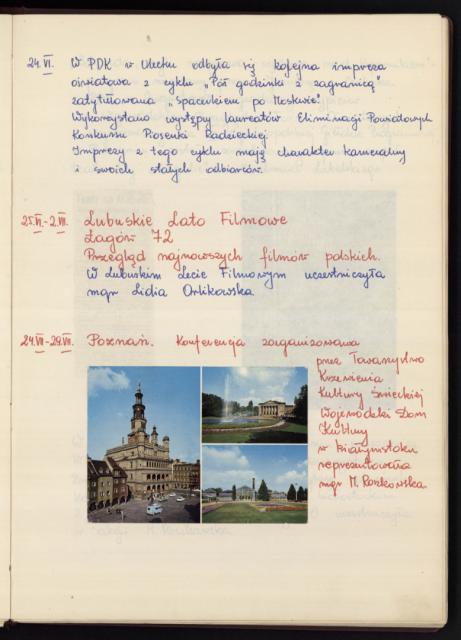 24.VI. W PDK w Olecku odbyła się kolejna impreza
oświatowa z cyklu „Pół godzinki z zagranicą”
zatytułowana „Spacerkiem po Moskwie”.
Wykorzystano występy laureatów Eliminacji Powiatowych
Konkursu Piosenki Radzieckiej.
Imprezy z tego cyklu mają charakter kameralny
i swoich stałych odbiorców.
25.VI.-2.VII. Lubuskie Lato Filmowe
Łagów 72
Przegląd najnowszych filmów polskich.
W Lubuskim Lecie Filmowym uczestniczyła
mgr Lidia Orlikowska
24.VII-29.VII. Poznań. Konferencja zorganizowana
przez Towarzystwo
Krzewienia
Kultury Świeckiej
Wojewódzki Dom
Kultury
w Białymstoku
reprezentowała
mgr M.